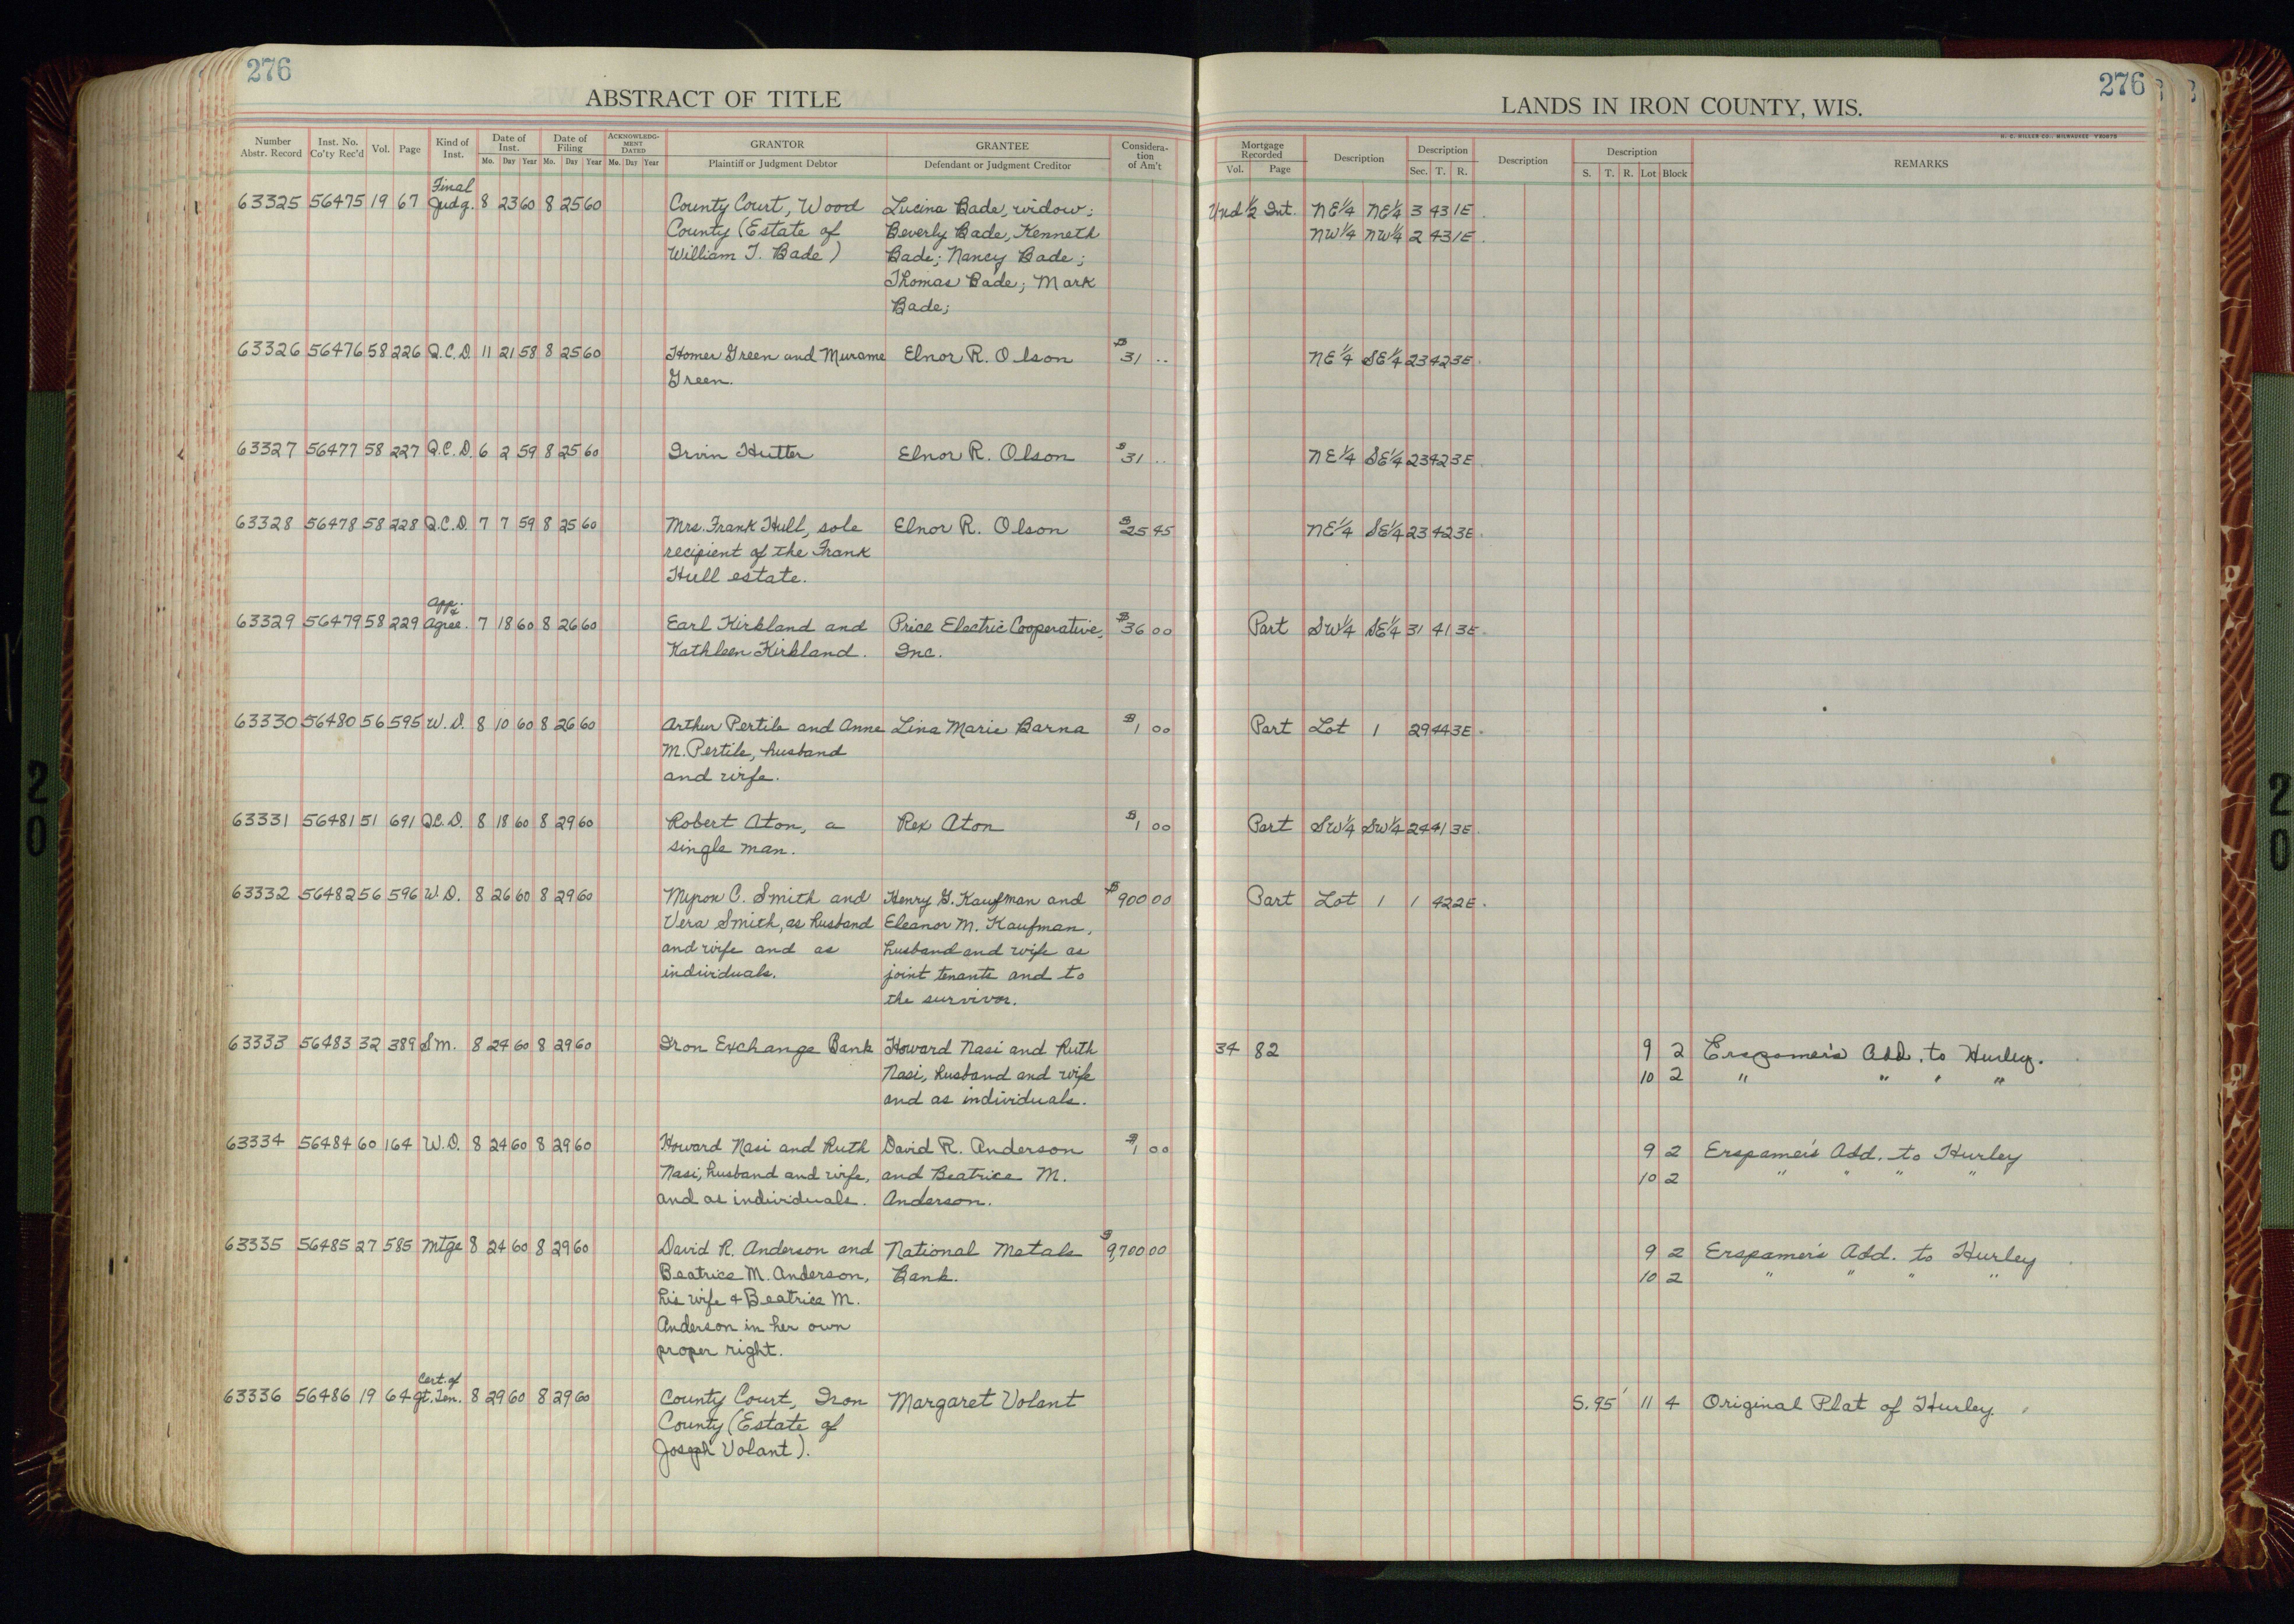 276
ABSTRACT OF TITLE
Number Abstr. Record Inst. No. Co'ty Rec'd Vol. Page Kind of Inst. Date of Inst. Mo. Day Year Date of Filing Mo. Day Year ACKNOWLEDGMENT DATED Mo. Day Year GRANTOR Plaintiff or Judgment Debtor GRANTEE Defendant or Judgment Creditor Consideration of Am't
276
LANDS IN IRON COUNTY, WIS.
H. C. MILLER CO., MILWAUKEE
Mortgage Recorded Vol. Page Description Description Sec. T. R. Description Description S. T. R. Lot Block REMARKS
Final
63325 56475 19 67 Judg. 8 23 60 8 25 60 County Court, Wood Lucina Bade, widow; Und 1/2 Int. NE1/4 NE1/4 3 43 1E
County (Estate of Beverly Bade, Kenneth NW1/4 NW1/4 2 43 1E
William J. Bade) Bade; Nancy Bade;
Thomas Bade; Mark
Bade;
63326 56476 58 226 Q.C.D. 11 21 58 8 25 60 Homer Green and Murame Elnor R. Olson $31 .. NE1/4 SE1/4 23 42 3E
Green.
63327 56477 58 227 Q.C.D. 6 2 59 8 25 60 Irvin Hutter Elnor R. Olson $31 .. NE1/4 SE1/4 23 42 3E
63328 56478 58 228 Q.C.D. 7 7 59 8 25 60 Mrs. Frank Hull, sole Elnor R. Olson $25 45 NE1/4 SE1/4 23 42 3E
recipient of the Frank
Hull estate.
App. &
63329 56479 58 229 Agree. 7 18 60 8 26 60 Earl Kirkland and Price Electric Cooperative, $36 00 Part SW1/4 SE1/4 31 41 3E
Kathleen Kirkland. Inc.
63330 56480 56 595 W.D. 8 10 60 8 26 60 Arthur Pertile and Anne Lina Marie Barna $1 00 Part Lot 1 29 44 3E
M. Pertile, husband
and wife.
63331 56481 51 691 Q.C.D. 8 18 60 8 29 60 Robert Aton, a Rex Aton $1 00 Part SW1/4 SW1/4 24 41 3E
single man.
63332 56482 56 596 W.D. 8 26 60 8 29 60 Myron C. Smith and Henry G. Kaufman and $900 00 Part Lot 1 1 42 2E
Vera Smith, as husband Eleanor M. Kaufman,
and wife and as husband and wife as
individuals. joint tenants and to
the survivor.
63333 56483 32 389 S.M. 8 24 60 8 29 60 Iron Exchange Bank Howard Nasi and Ruth 34 82 9 2 Erspamer's Add. to Hurley.
Nasi, husband and wife 10 2 " " " "
and as individuals.
63334 56484 60 164 W.D. 8 24 60 8 29 60 Howard Nasi and Ruth David R. Anderson $1 00 9 2 Erspamer's Add. to Hurley
Nasi, husband and wife, and Beatrice M. 10 2 " " " "
and as individuals. Anderson.
63335 56485 27 585 Mtge 8 24 60 8 29 60 David R. Anderson and National Metals $9,700 00 9 2 Erspamer's Add. to Hurley
Beatrice M. Anderson, Bank. 10 2 " " " "
his wife & Beatrice M.
Anderson in her own
proper right.
Cert. of
63336 56486 19 64 Jt. Ten. 8 29 60 8 29 60 County Court, Iron Margaret Volant S. 95' 11 4 Original Plat of Hurley.
County (Estate of
Joseph Volant).
20
20